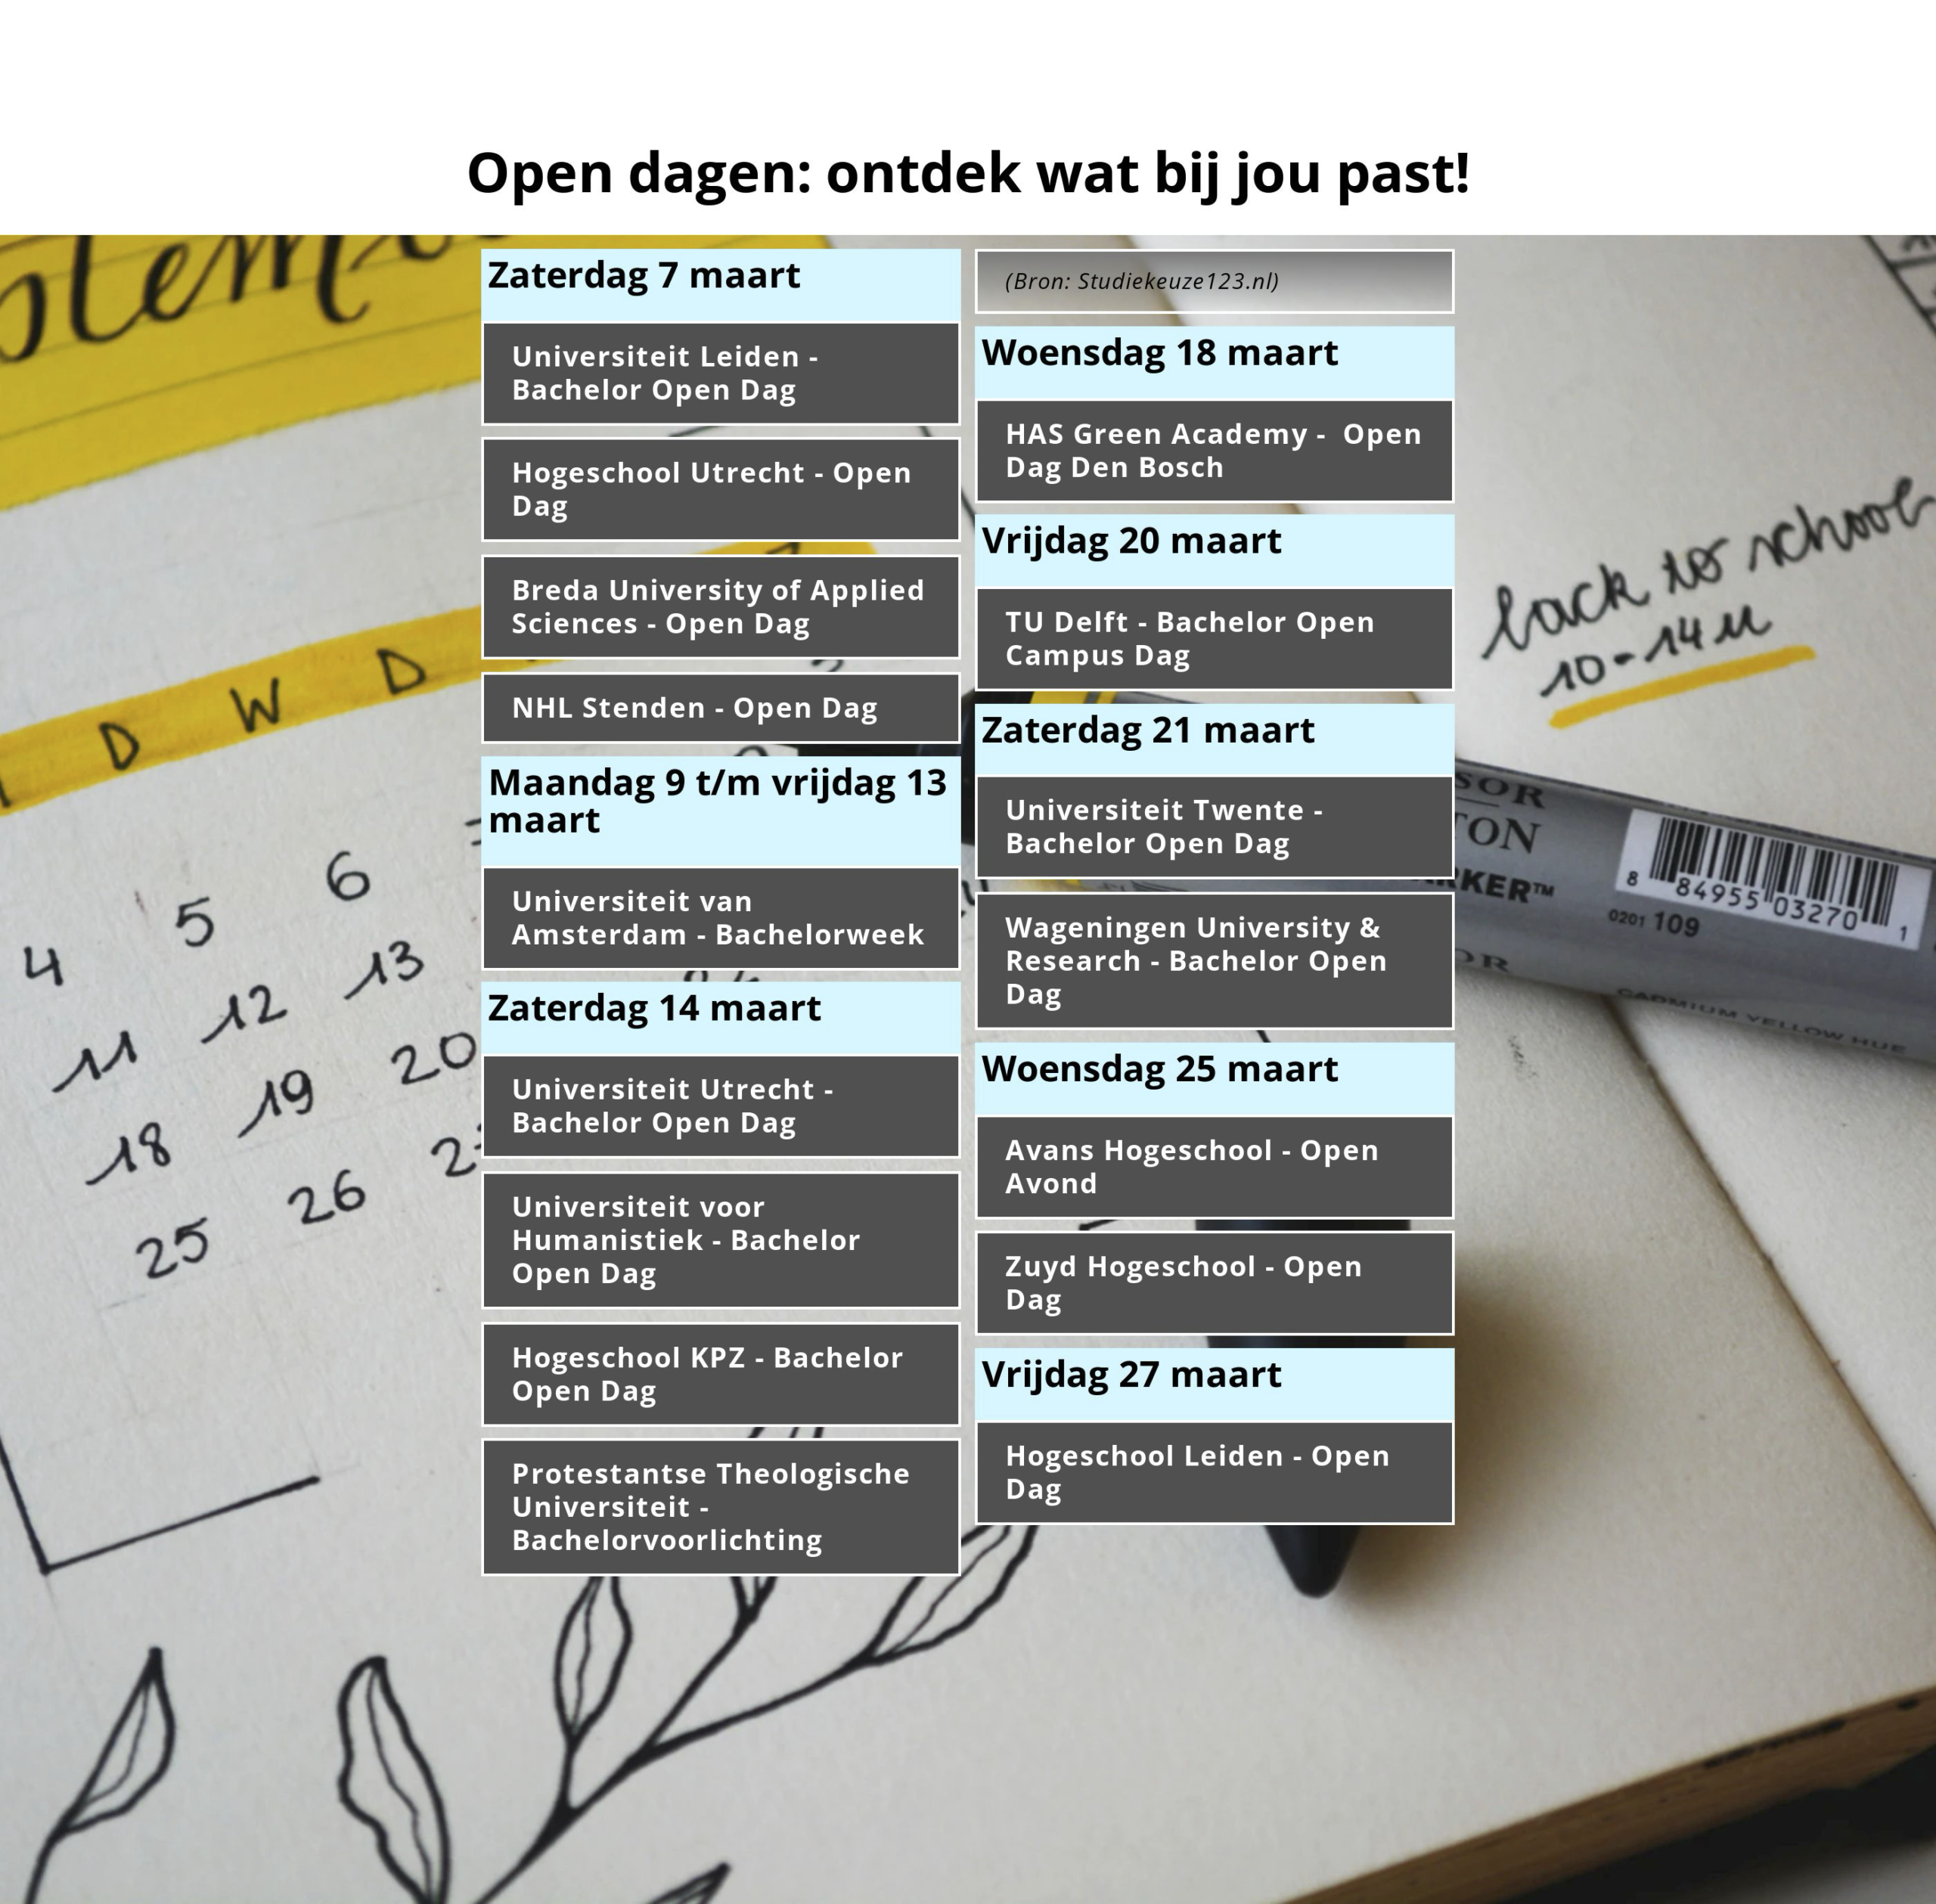 Open dagen: ontdek wat bij jou past!
Zaterdag 7 maart
Universiteit Leiden -
Bachelor Open Dag
Hogeschool Utrecht - Open
Dag
Breda University of Applied
Sciences - Open Dag
NHL Stenden - Open Dag
Maandag 9 t/m vrijdag 13
maart
Universiteit van
Amsterdam - Bachelorweek
Zaterdag 14 maart
Universiteit Utrecht -
Bachelor Open Dag
Universiteit voor
Humanistiek - Bachelor
Open Dag
Hogeschool KPZ - Bachelor
Open Dag
Protestantse Theologische
Universiteit -
Bachelorvoorlichting
(Bron: Studiekeuze123.nl)
Woensdag 18 maart
HAS Green Academy -  Open
Dag Den Bosch
Vrijdag 20 maart
TU Delft - Bachelor Open
Campus Dag
Zaterdag 21 maart
Universiteit Twente -
Bachelor Open Dag
Wageningen University &
Research - Bachelor Open
Dag
Woensdag 25 maart
Avans Hogeschool - Open
Avond
Zuyd Hogeschool - Open
Dag
Vrijdag 27 maart
Hogeschool Leiden - Open
Dag
D W D
4 5 6
11 12 13
18 19 20
25 26
back to school
10-14u
8 84955 03270 1
0201 109
CADMIUM YELLOW HUE